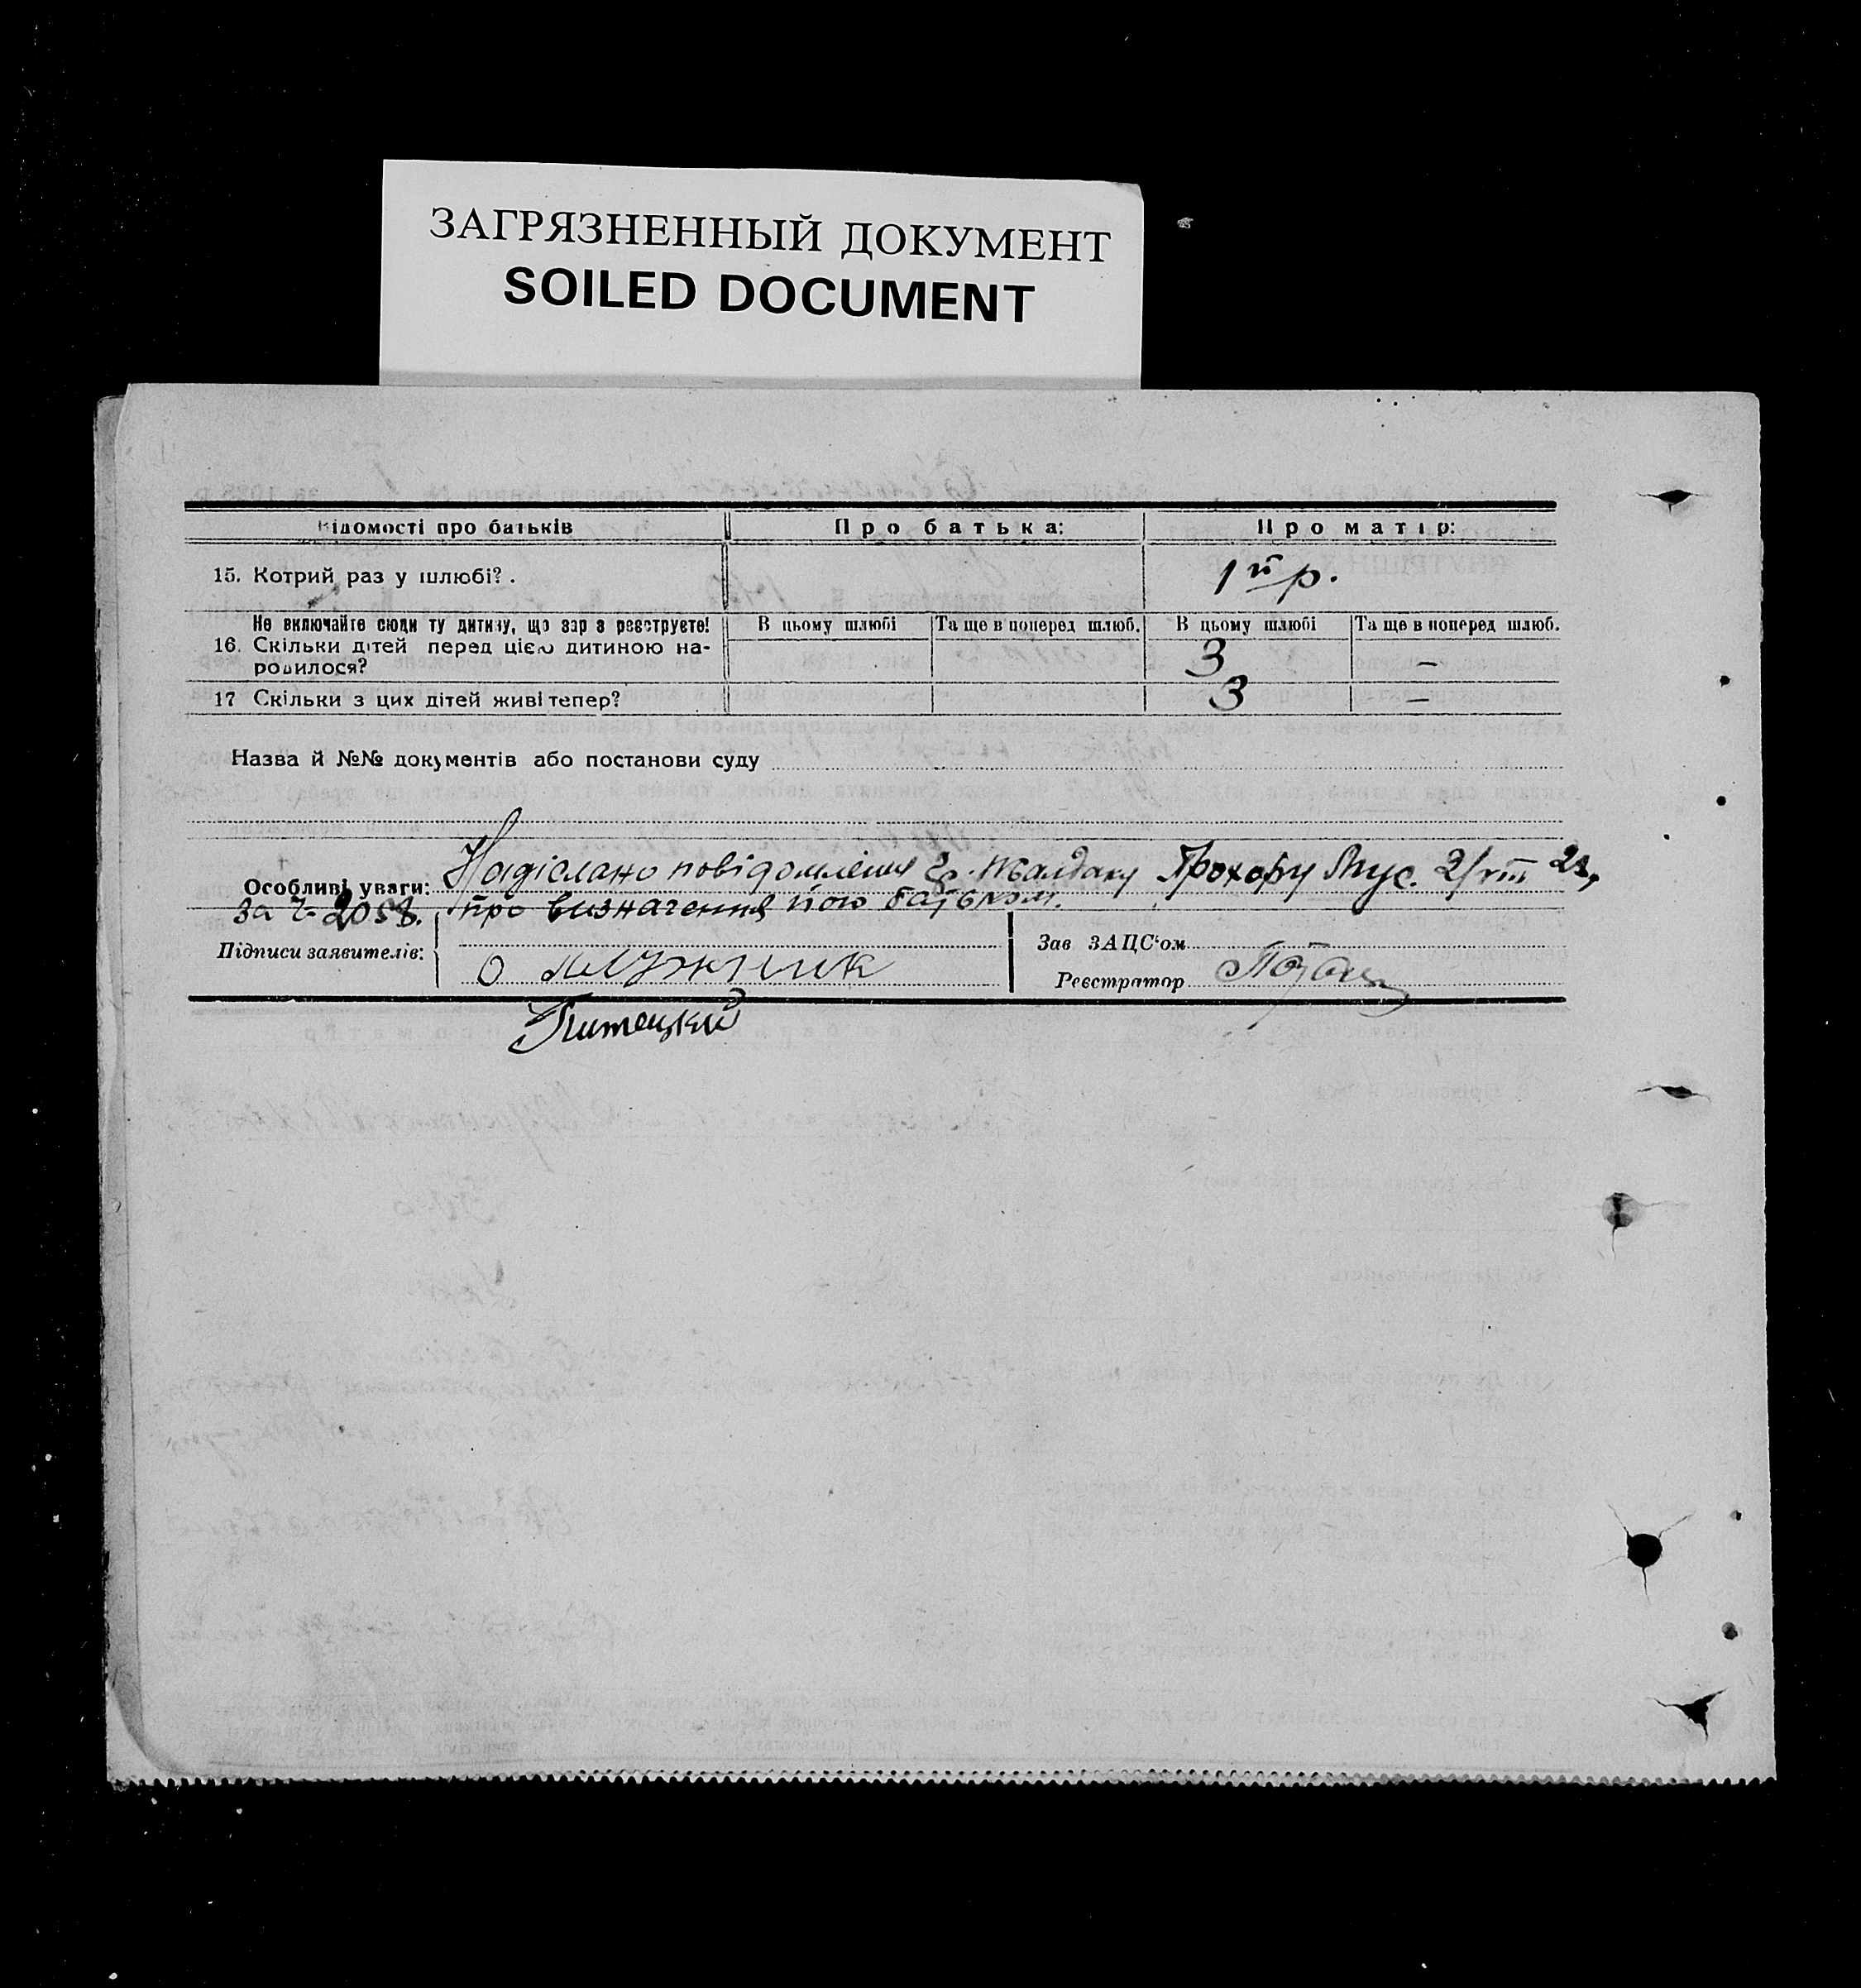 ЗАГРЯЗНЕННЫЙ ДОКУМЕНТ
SOILED DOCUMENT
Відомості про батьків Про батька: Про матір:
15. Котрий раз у шлюбі? . 1й р.
Не включайте сюди ту дитину, що зараз реєструєте! В цьому шлюбі Та ще в поперед шлюб. В цьому шлюбі Та ще в поперед шлюб.
16. Скільки дітей перед цією дитиною на-
родилося? 3 —
17 Скільки з цих дітей живі тепер? 3 —
Назва й №№ документів або постанови суду
Особливі уваги: Надіслано повідомлення гр. Жалдаку Прохору 2/VIII 28,
за ч. 2058. про визначення його батьком.
Підписи заявителів: О Мужчик Зав ЗАЦС'ом
Реєстратор